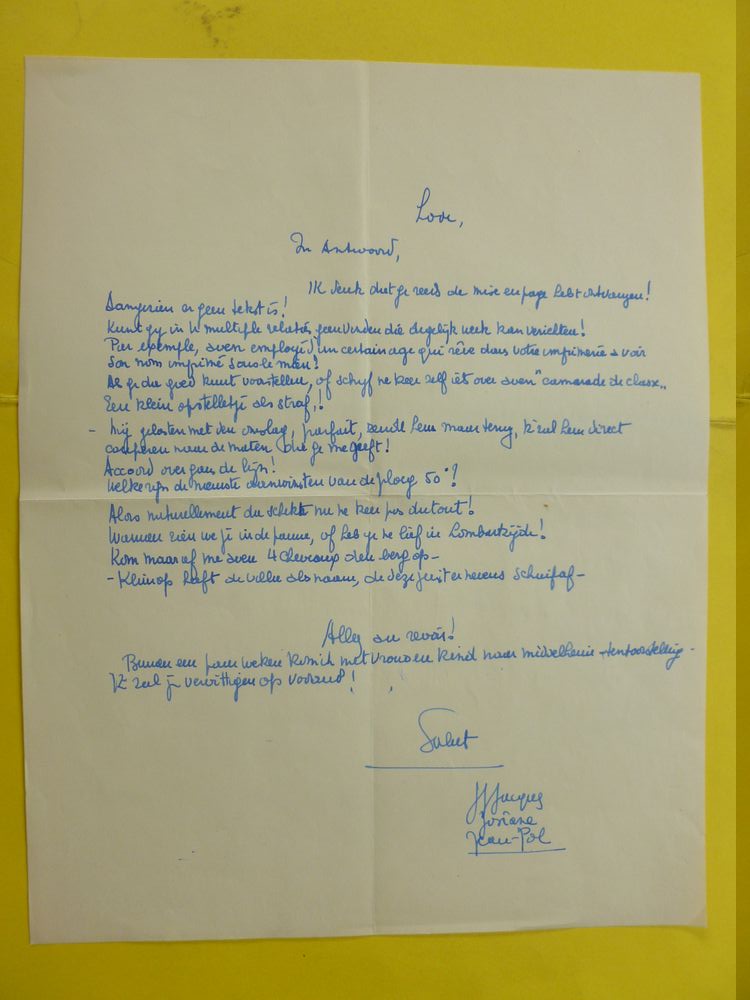 Love,
In Antwoord,
IK denk dat ge reeds de mise en page hebt ontvangen!
Aangezien er geen tekst is!
Kunt gy in U multiple relaties geen vinden die degelijk werk kan verichten!
Par exemple, aven employé d'un certain age qui rêve dans votre imprimerie a voir
son nom imprimé sous le mien!
Als ge die goed kunt voorstellen, of schijf ne keer zelf iets over aven "camarade de classe„
Een klein opstelletje als straf!!
- Mij gelasten met den omslag, parfait, zende hem maar terug, k'zal hem direct
couperen naar de maten die ge me geeft!
Accoord over gans de lijn!
Welke zijn de nieuwste aanwinsten van de ploeg 50°?
Alors naturellement du schikte nu ne keer pas du tout!
Wanneer zien we je in de panne, of heb ge ne lief in Lombartzijde!
Kom maar af me aven 4 chevaux den berg op -
- Klimop haft de villa als naam, de deze juist er nevens Schuifaf -
Alley au revâr!
Binnen een paar weken kom ik met vrouw en kind naar middelheim - tentoorstelling -
IK zal je verwittigen op voorand!
Saluut
JJJacques
Josiane
Jean-Pol